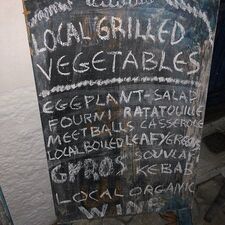 LOCAL GRILLED
VEGETABLES
EGGPLANT-SALAD
FOURNI RATATOUILLE
MEETBALLS CASSEROLE
LOCAL BOILED LEAFY GREENS
GYROS SOUVLAKI
KEBAB
LOCAL ORGANIC
WINE